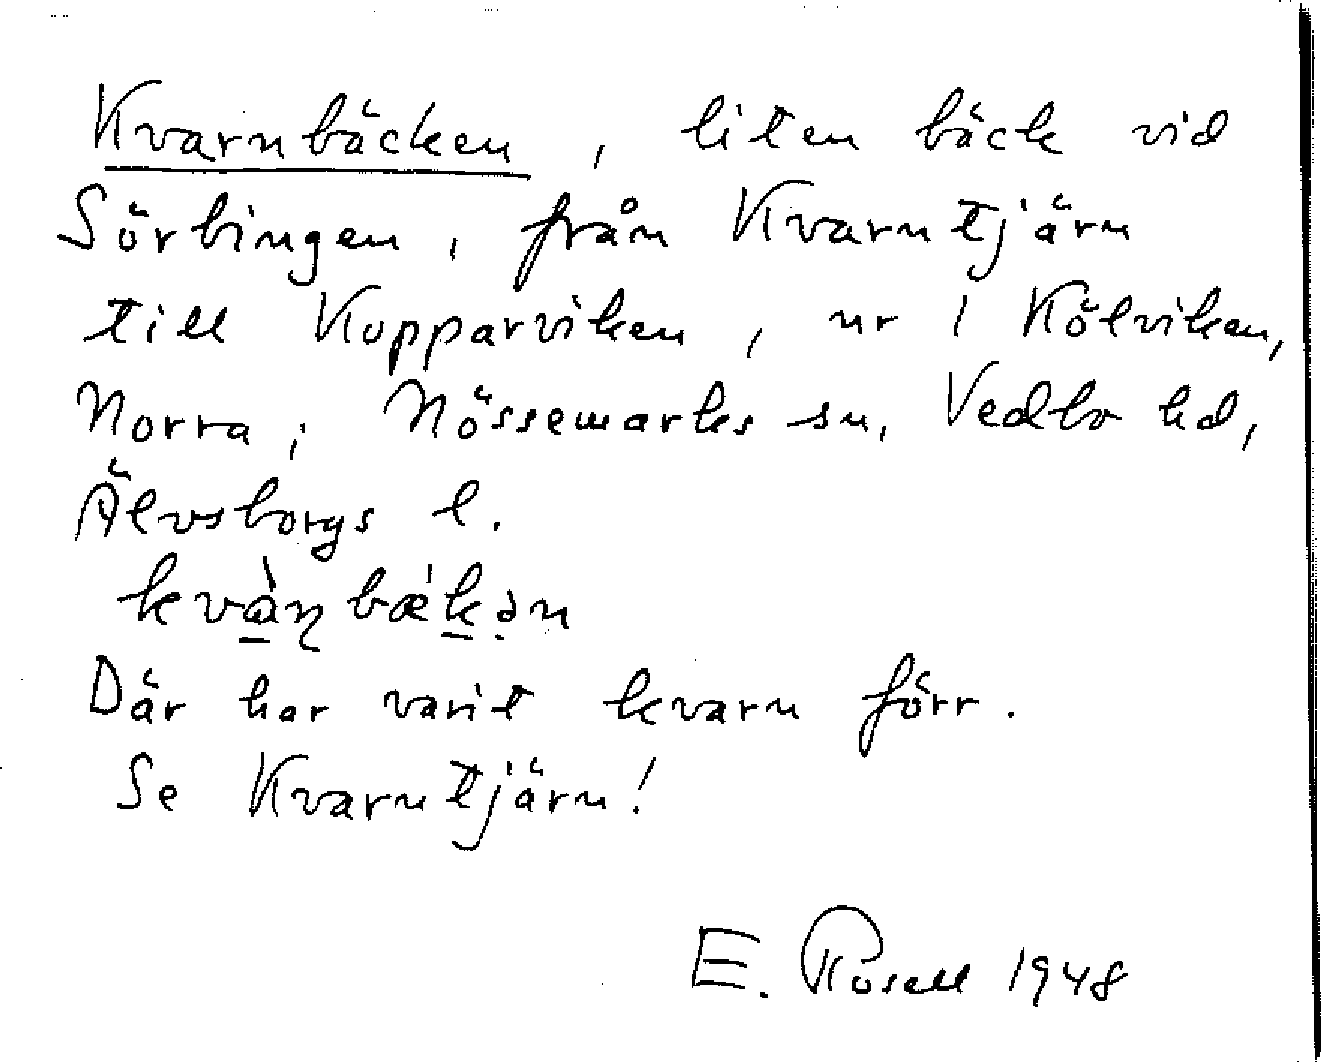 Kvarnbäcken, liten bäck vid
Sörbingen, från Kvarntjärn
till Kopparviken, nr 1 Kölviken,
Norra; Nössemarks sn, Vedbo hd,
Älvsborgs l.
kvàɳbæ̀kən
Där har varit kvarn förr.
Se Kvarntjärn!
E. Rosell 1948